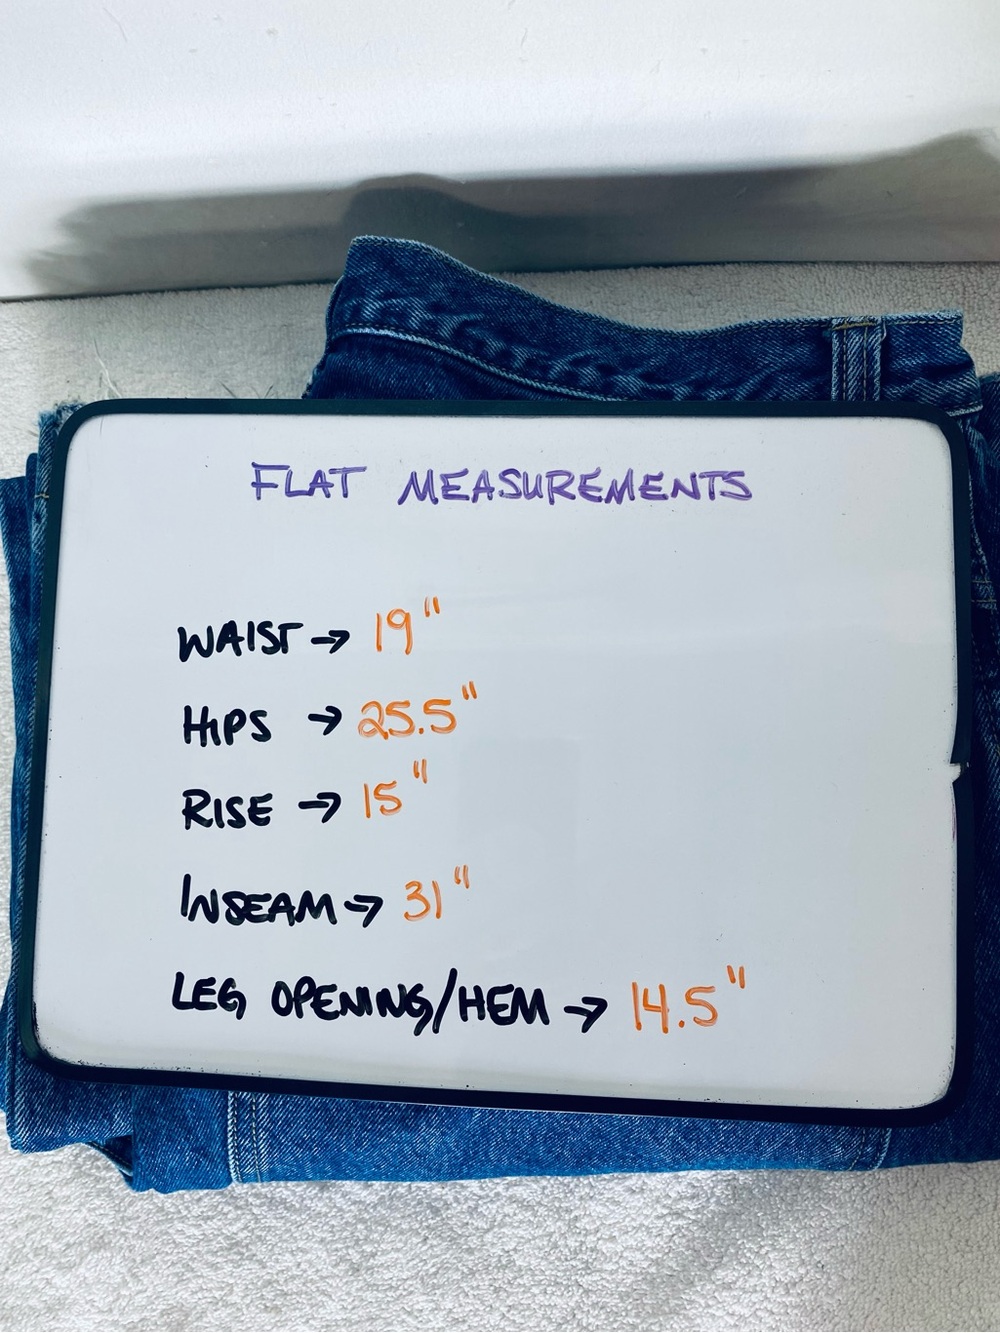 FLAT MEASUREMENTS
WAIST → 19"
HIPS → 25.5"
RISE → 15"
INSEAM → 31"
LEG OPENING/HEM → 14.5"